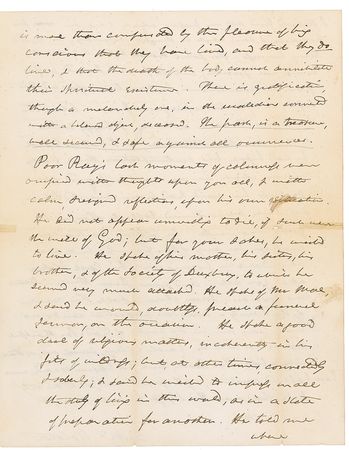 is more than compensated by the pleasure of being
conscious that they have lived, and that they do
live, & that the death of the body, cannot annihilate
their spiritual existence. There is gratification,
though a melancholy one, in the recollections connected
with a beloved object, deceased. The past, is a treasure,
well secured, & safe against all occurrences.
Poor Ray's last moments of calmness were
occupied with thoughts upon you all, & with
calm resigned reflections upon his own situation.
He did not appear unwilling to die, if such were
the will of God; but for your sakes, he wished
to live. He spoke of his mother, his sister, his
brother, & of the Society of Duxbury, to which he
seemed very much attached. He spoke of Mr
& said he would, doubtless, preach a funeral
sermon, on the occasion. He spoke a good
deal of religious matters, incoherently in his
fits of wildness; but at other times connectedly
& soberly; & said he wished to impress on all
the duty of being in this world, as in a state
of preparation for another. He told me
where